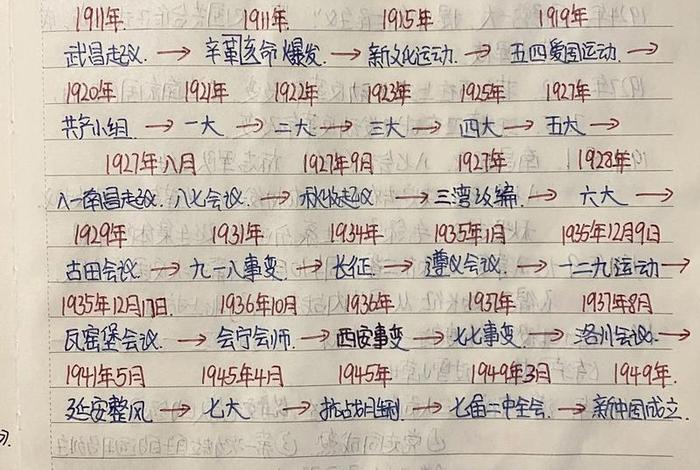 1911年. 1911年. 1915年 1919年
武昌起义. → 辛亥革命 爆发. → 新文化运动. → 五四爱国运动. →
1920年 1921年 1922年 1923年 1925年 1927年
共产小组. → 一大 → 二大 → 三大 → 四大 → 五大 →
1927年八月 1927年9月 1927年 1928年
八一南昌起义. 八七会议. → 秋收起义 → 三湾改编. → 六大 →
1929年 1931年 1934年 1935年1月 1935年12月9日
古田会议 → 九一八事变. → 长征. → 遵义会议. → 一二九运动 →
1935年12月17日. 1936年10月 1936年 1937年 1937年8月
瓦窑堡会议. → 会宁会师. → 西安事变 → 七七事变 → 洛川会议. →
1941年5月 1945年4月 1945年 1949年3月 1949年.
延安整风 → 七大 → 抗战胜利 → 七届二中全会. → 新中国成立.